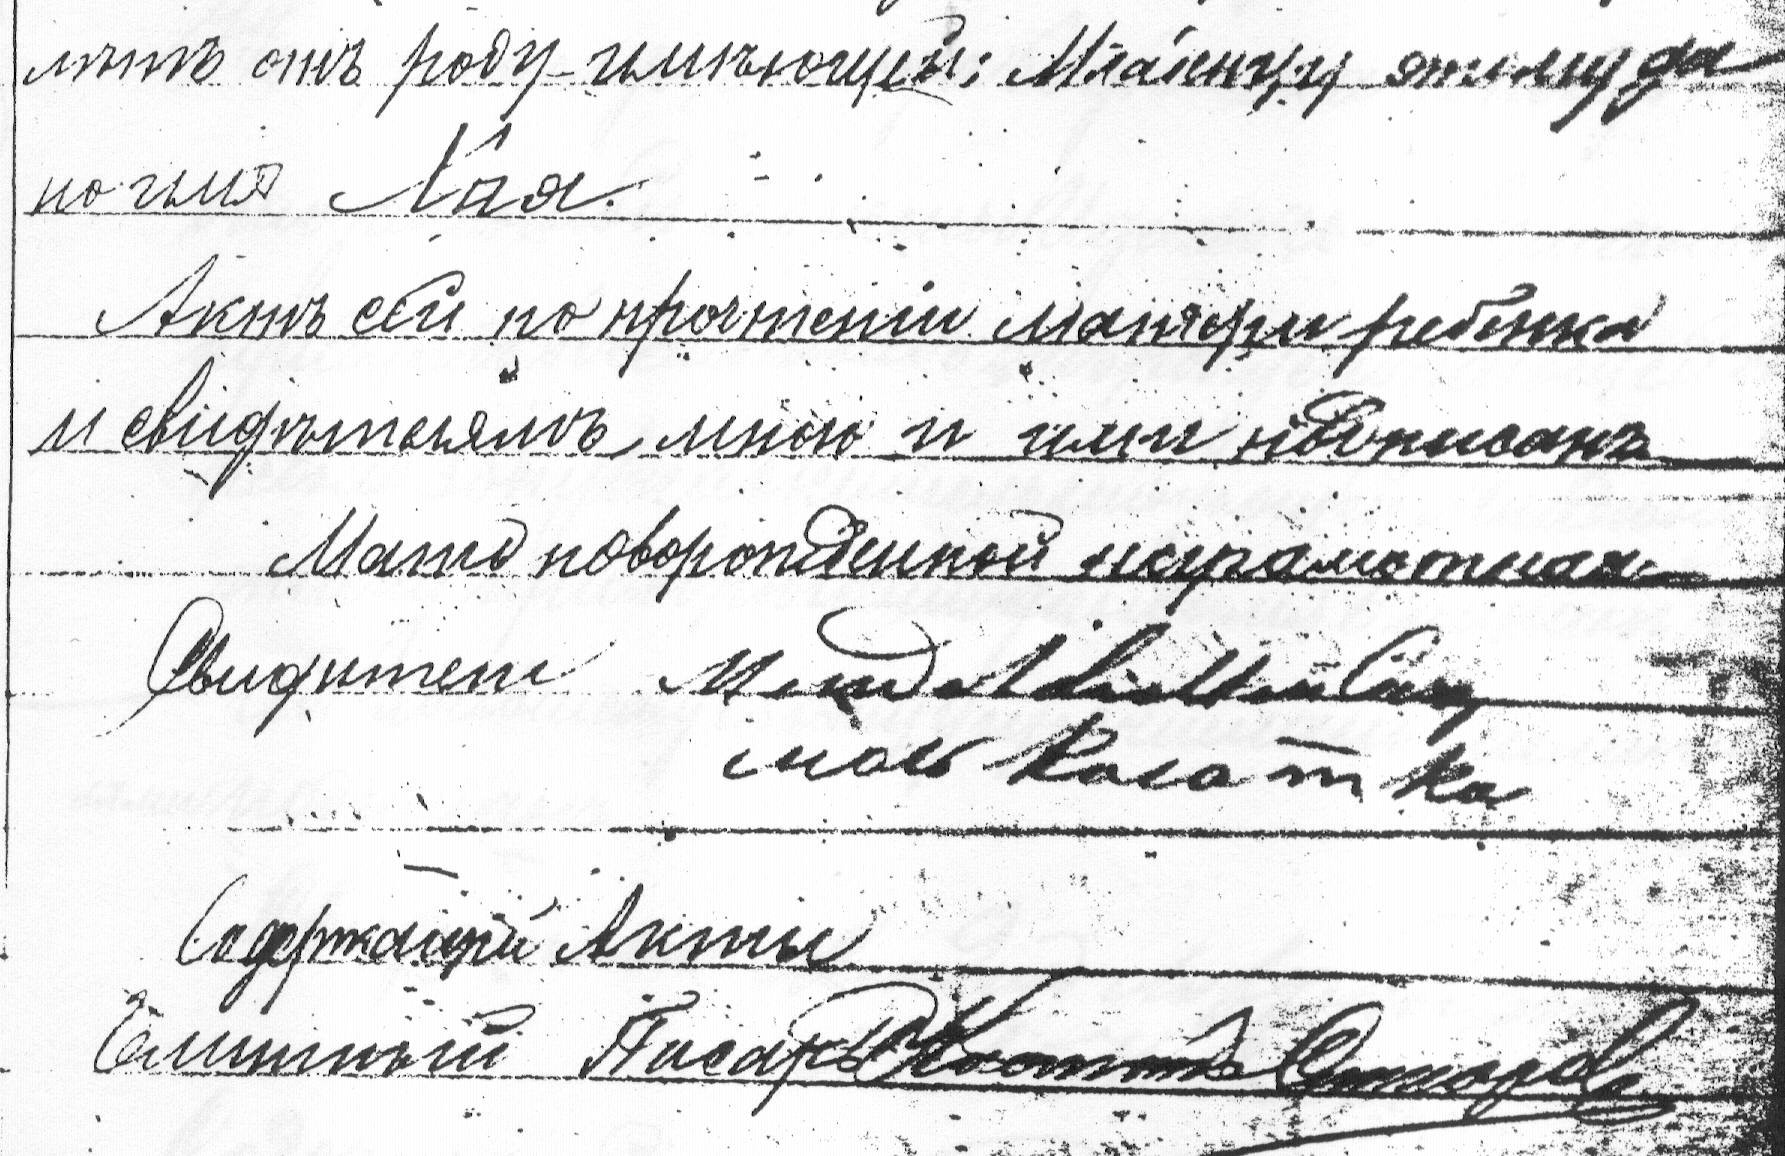 лѣтъ отъ роду имѣющей; Младенцу этому да
но имя Хая.
Актъ сей по прочтеніи матери ребенка
и свидѣтелямъ, мною и ими подписанъ
Мать новорожденной неграмотная.
Свидѣтели
Содержащій Акты
Гминный Писарь